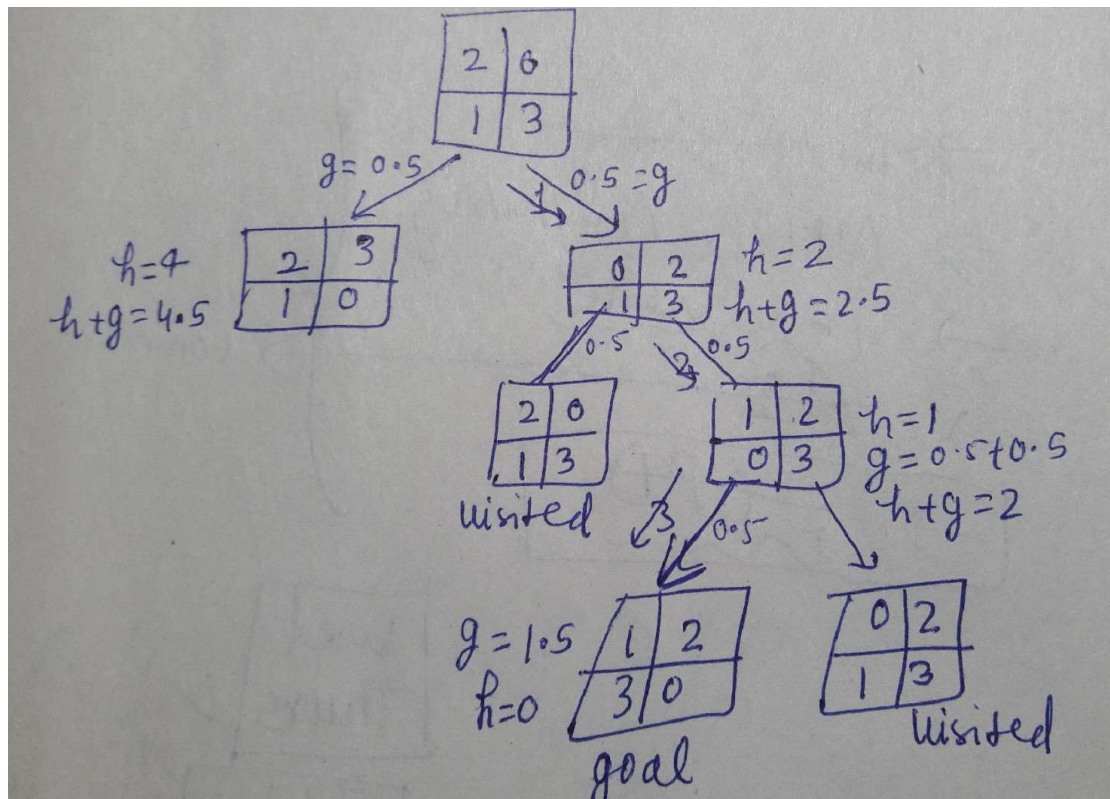 2 0
1 3
g = 0.5
1
0.5 = g
h=4
h+g = 4.5
2 3
1 0
0 2
1 3
h = 2
h+g = 2.5
0.5
2
0.5
2 0
1 3
visited
1 2
0 3
h=1
g = 0.5+0.5
h+g = 2
3
0.5
g = 1.5
h=0
1 2
3 0
goal
0 2
1 3
visited